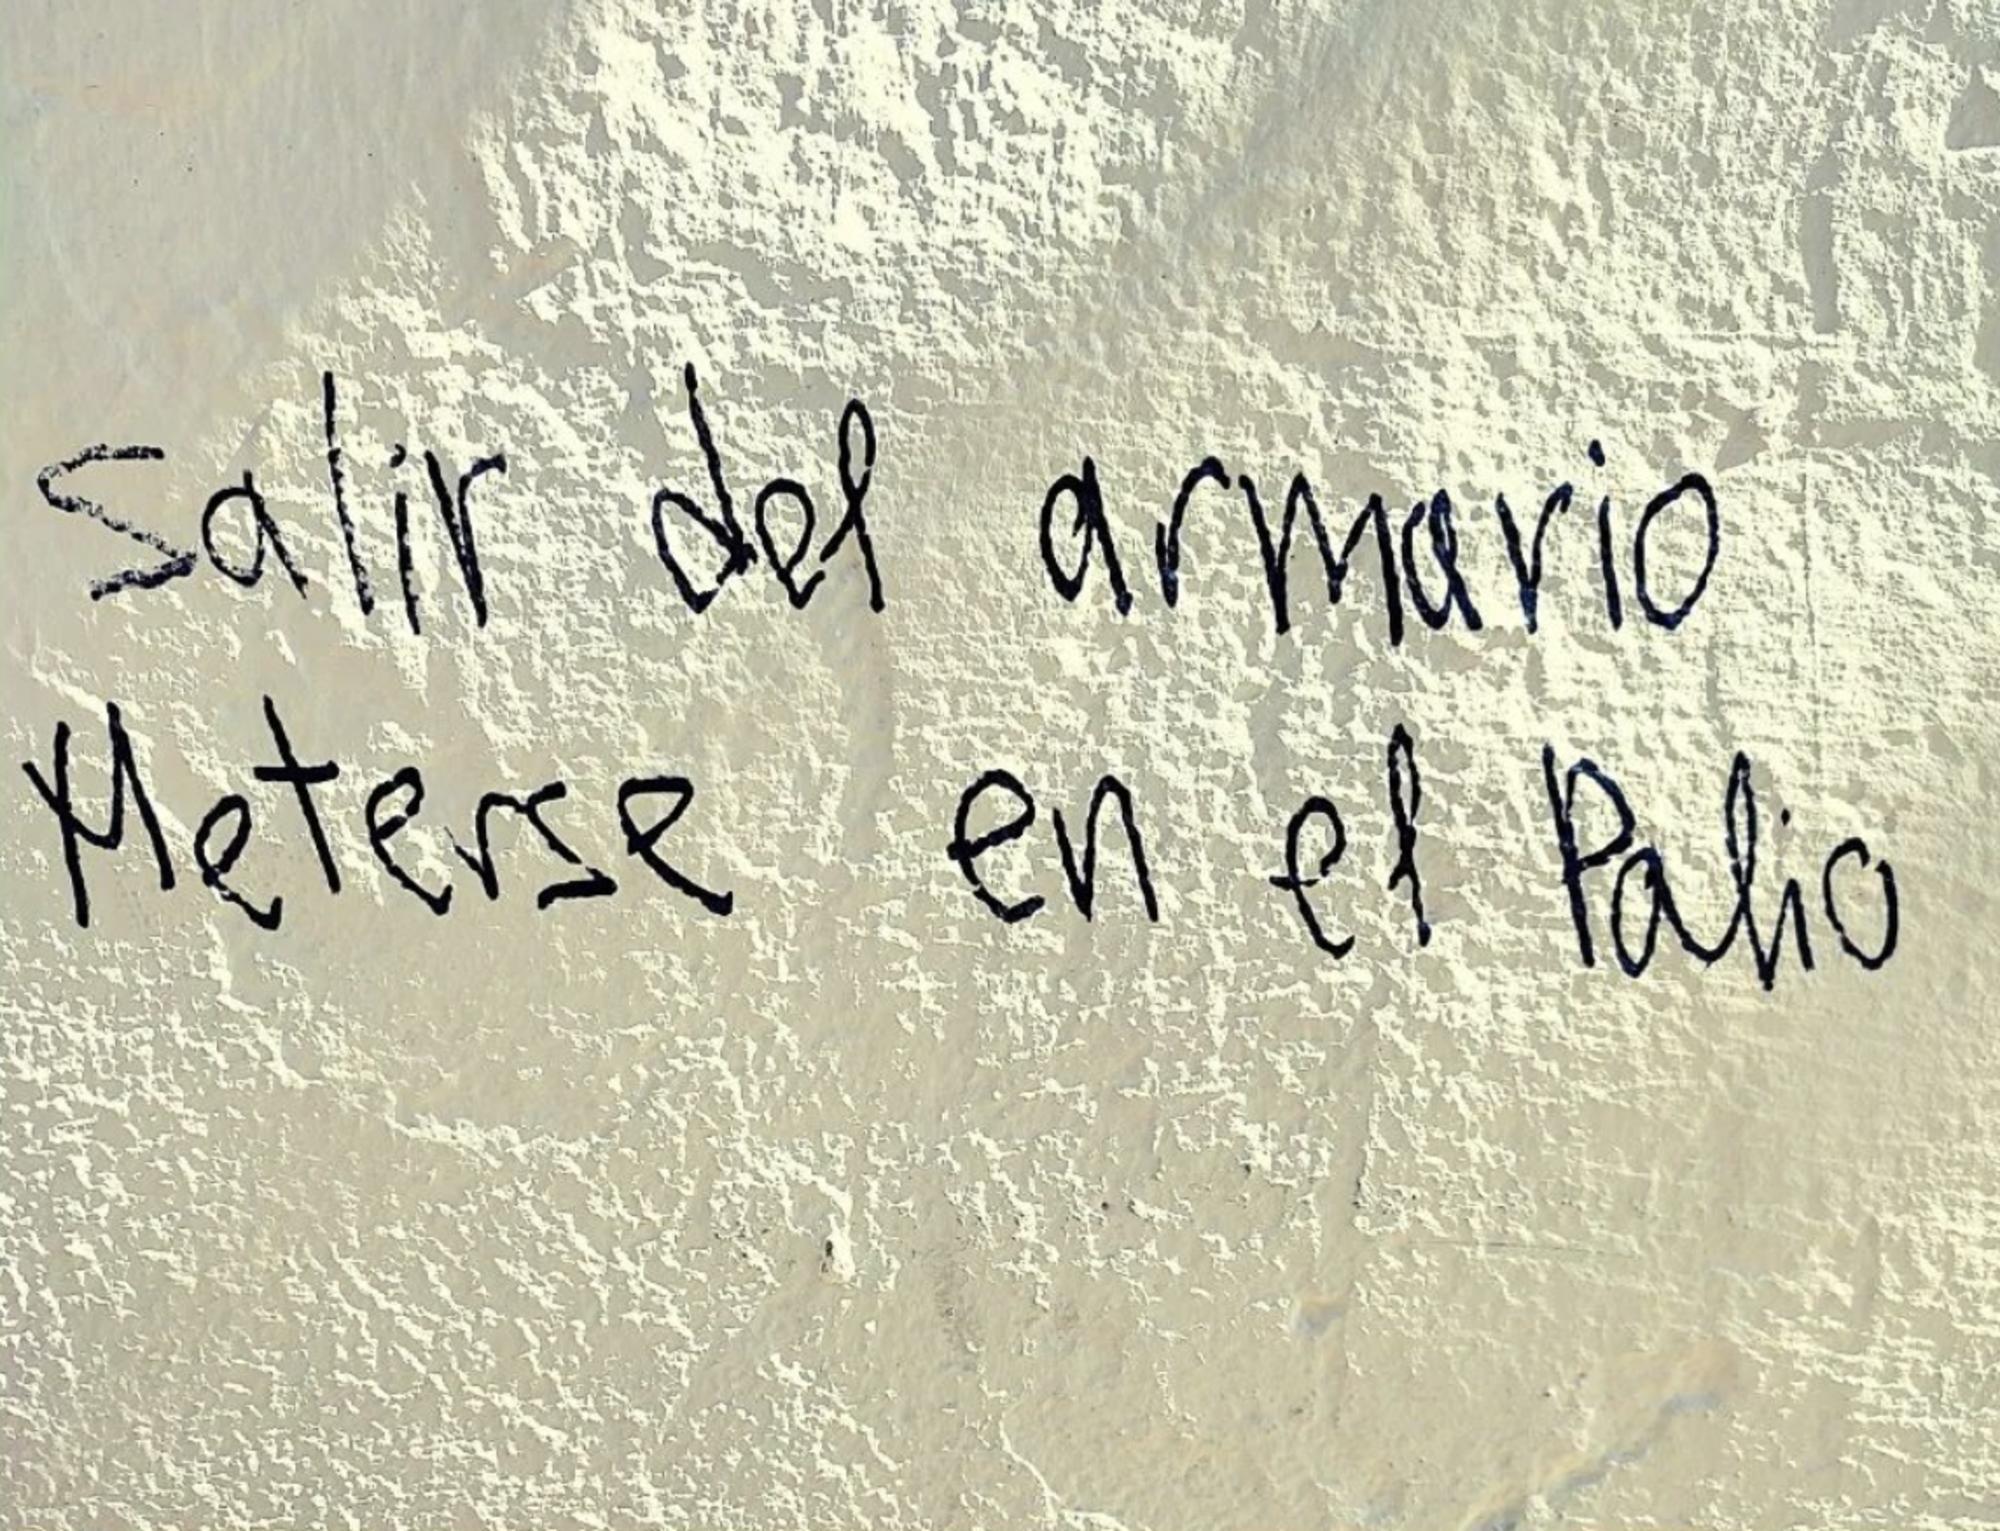 Salir del armario
Meterse en el Palio